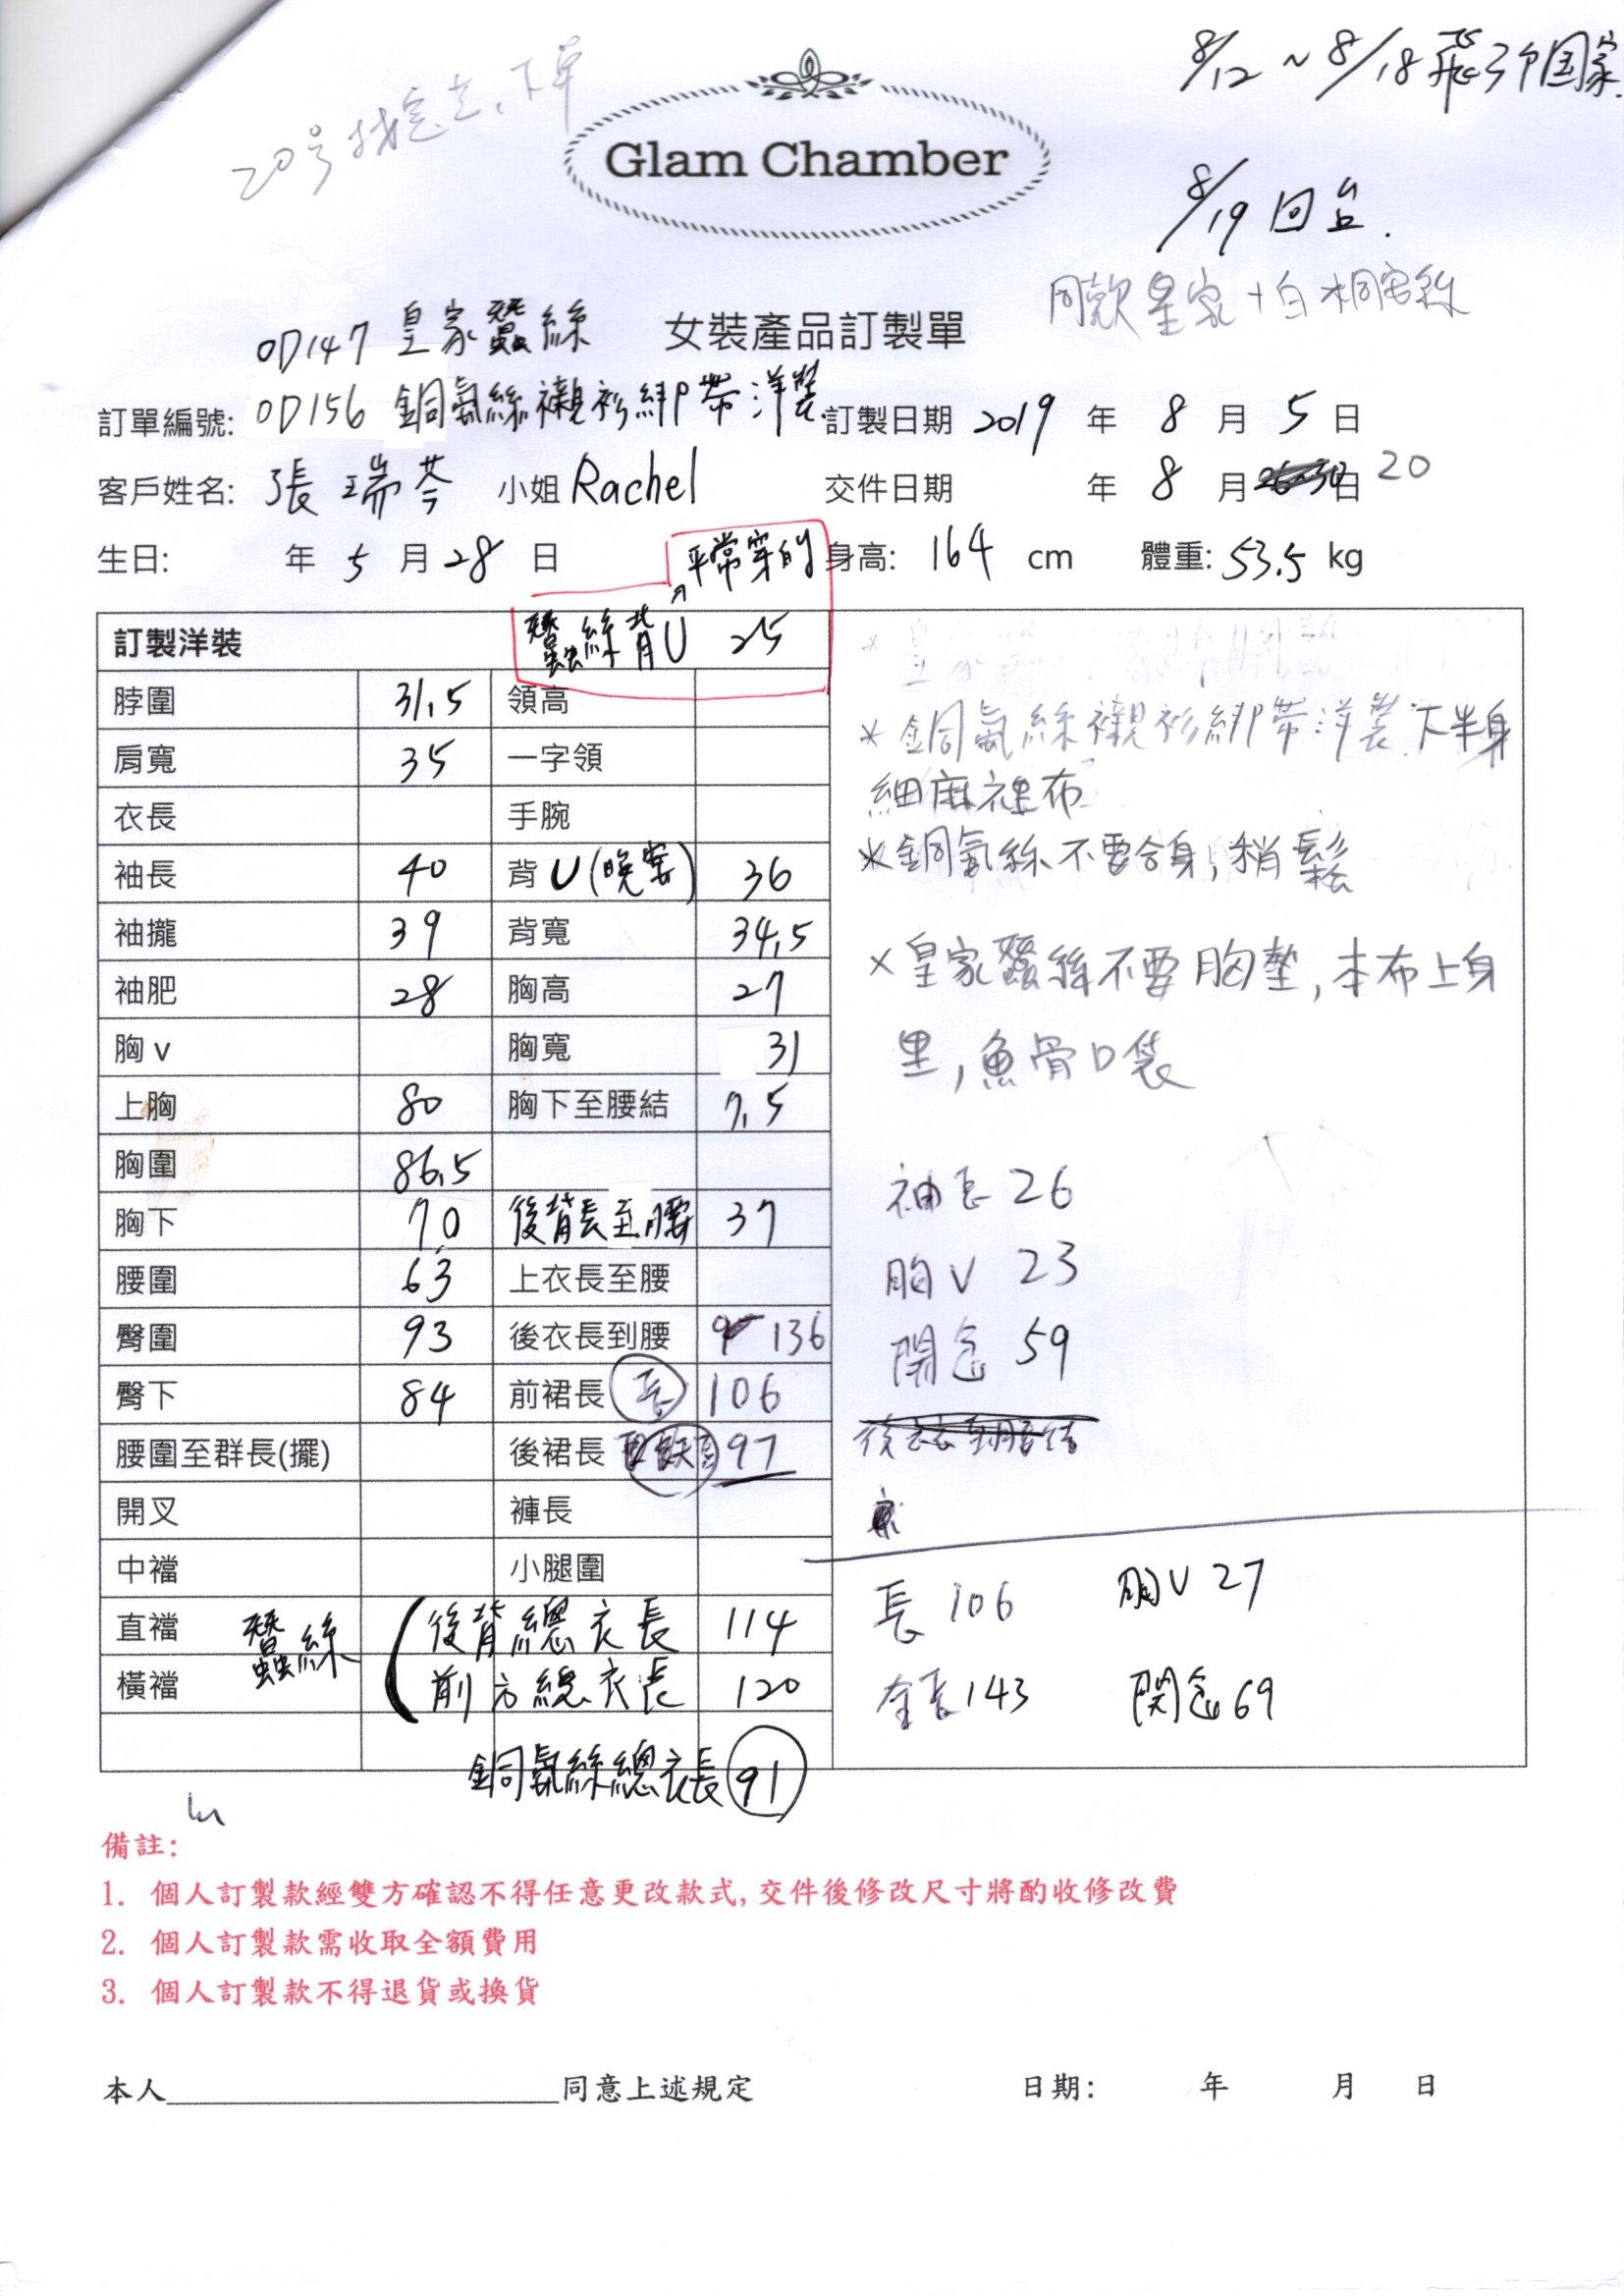 8/12 ~ 8/18 飛 国家.
20号 下單
Glam Chamber
8/19 回台.
同款皇家+白桐氨絲
OD147 皇家蠶絲
女裝產品訂製單
訂單編號: OD156 銅氨絲襯衫綁帶洋裝 訂製日期 2019 年 8 月 5 日
客戶姓名: 張瑞芩 小姐 Rachel 交件日期 年 8 月 日 20
生日: 年 5 月 28 日 身高: 164 cm 體重: 53.5 kg
平常穿的
訂製洋裝 蠶絲背U 25
脖圍 31.5 領高
肩寬 35 一字領
衣長 手腕
袖長 40 背U(晚宴) 36
袖攏 39 背寬 34.5
袖肥 28 胸高 27
胸v 胸寬 31
上胸 80 胸下至腰結 7.5
胸圍 86.5
胸下 70 後背長至腰 37
腰圍 63 上衣長至腰
臀圍 93 後衣長到腰 136
臀下 84 前裙長 長 106
腰圍至群長(擺) 後裙長 97
開叉 褲長
中襠 小腿圍
直襠 蠶絲 後背總衣長 114
橫襠 前方總衣長 120
銅氨絲總衣長 91
*銅氨絲襯衫綁帶洋裝下半身
細麻裡布
*銅氨絲不要合身,稍鬆
×皇家蠶絲不要胸墊,本布上身
里,魚骨口袋
袖長 26
胸V 23
開忿 59
長 106 胸V 27
全長 143 開忿 69
備註:
1. 個人訂製款經雙方確認不得任意更改款式,交件後修改尺寸將酌收修改費
2. 個人訂製款需收取全額費用
3. 個人訂製款不得退貨或換貨
本人 同意上述規定 日期: 年 月 日